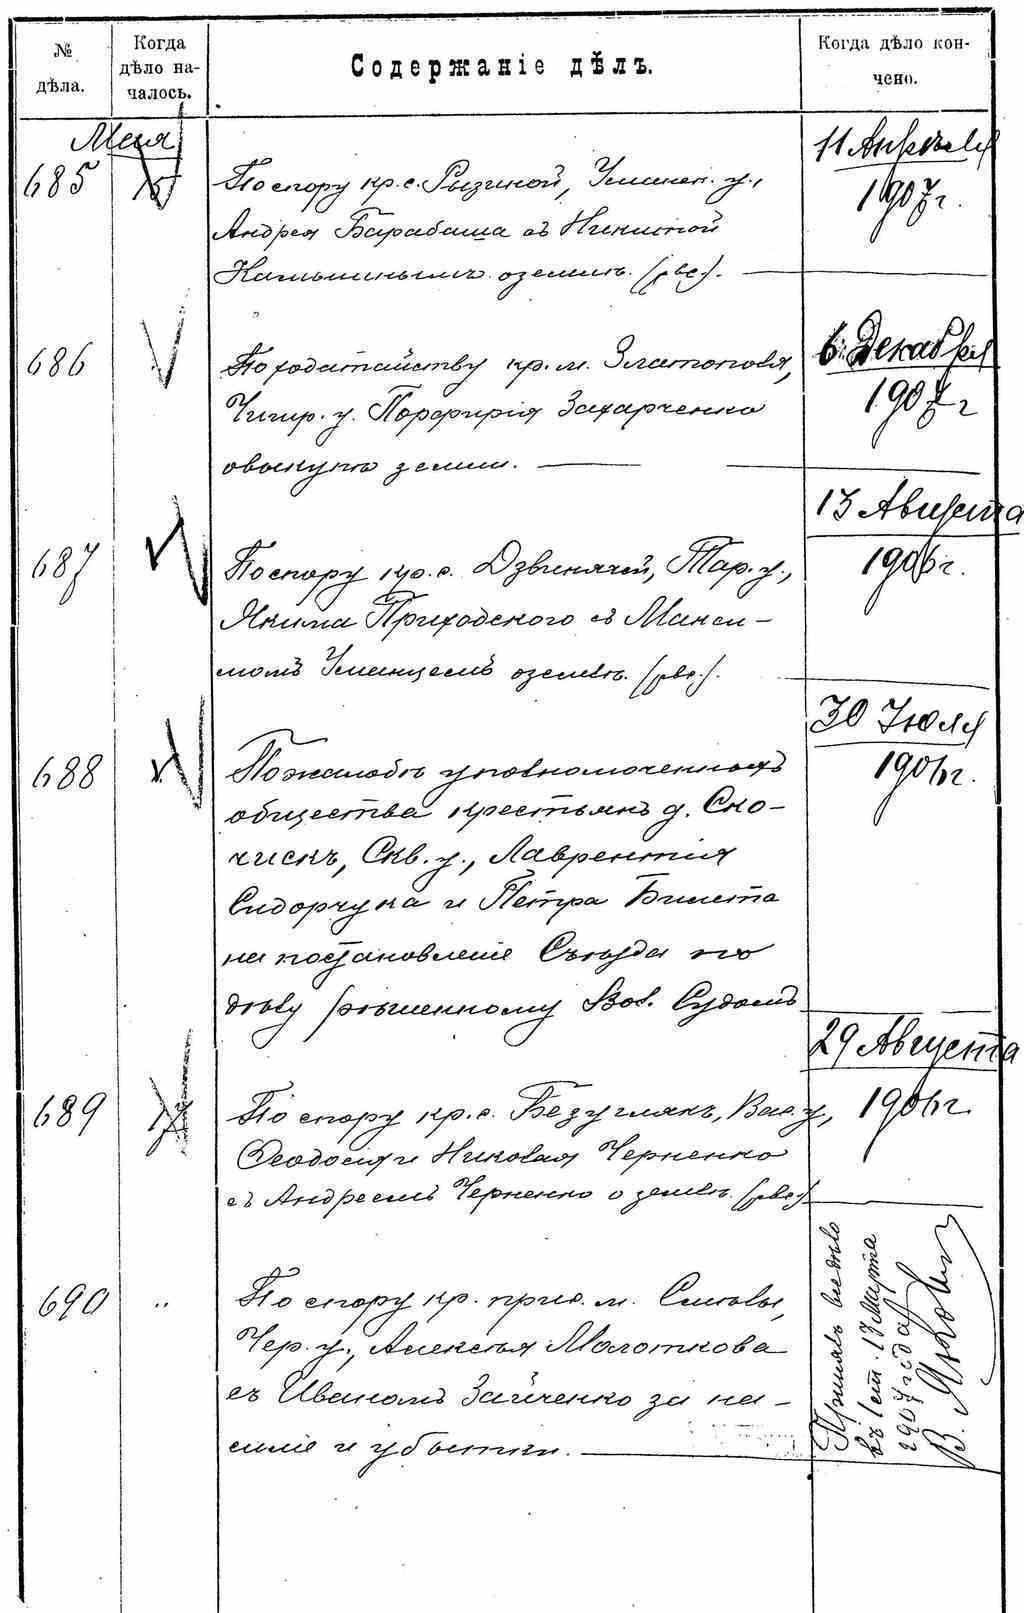 № дѣла.
Когда дѣло началось.
Содержаніе дѣлъ.
Когда дѣло кончено.
Мая
685
По спору кр. с. Рызиной, Уманск. у.,
Андрея Барабаша съ Никитой
о земл. (рев.).
11 Апрѣля
1907 г.
686
По ходатайству кр. м. Златополя,
Чигир. у. Порфирія Захарченко
о выкупѣ земли.
6 Декабря
1907 г
687
По спору кр. с. Дзвинячей, Тар. у.,
Якима Приходского съ Макси-
момъ Уманцемъ о землѣ. (рев.).
13 Августа
1906 г.
688
По жалобѣ уполномоченныхъ
общества крестьянъ д. Ско-
чискъ, Скв. у., Лаврентія
Сидорчука и Петра Билета
на постановленіе Съѣзда по
дѣлу рѣшенному Вол. Судомъ
30 Іюля
1906 г.
689
По спору кр. с. Безуглякъ, Вас. у,
Феодосія и Николая Черненко
съ Андреемъ Черненко о землѣ. (рев.)
29 Августа
1906 г
690
"
По спору кр. прис. м. Смѣлы,
Чер. у., Алексѣя Молоткова
съ Иваномъ Зайченко за на-
силіе и убытки.
Принялъ къ дѣлу
въ 1 ст. 13 Марта
1907 года
В. Яковъ